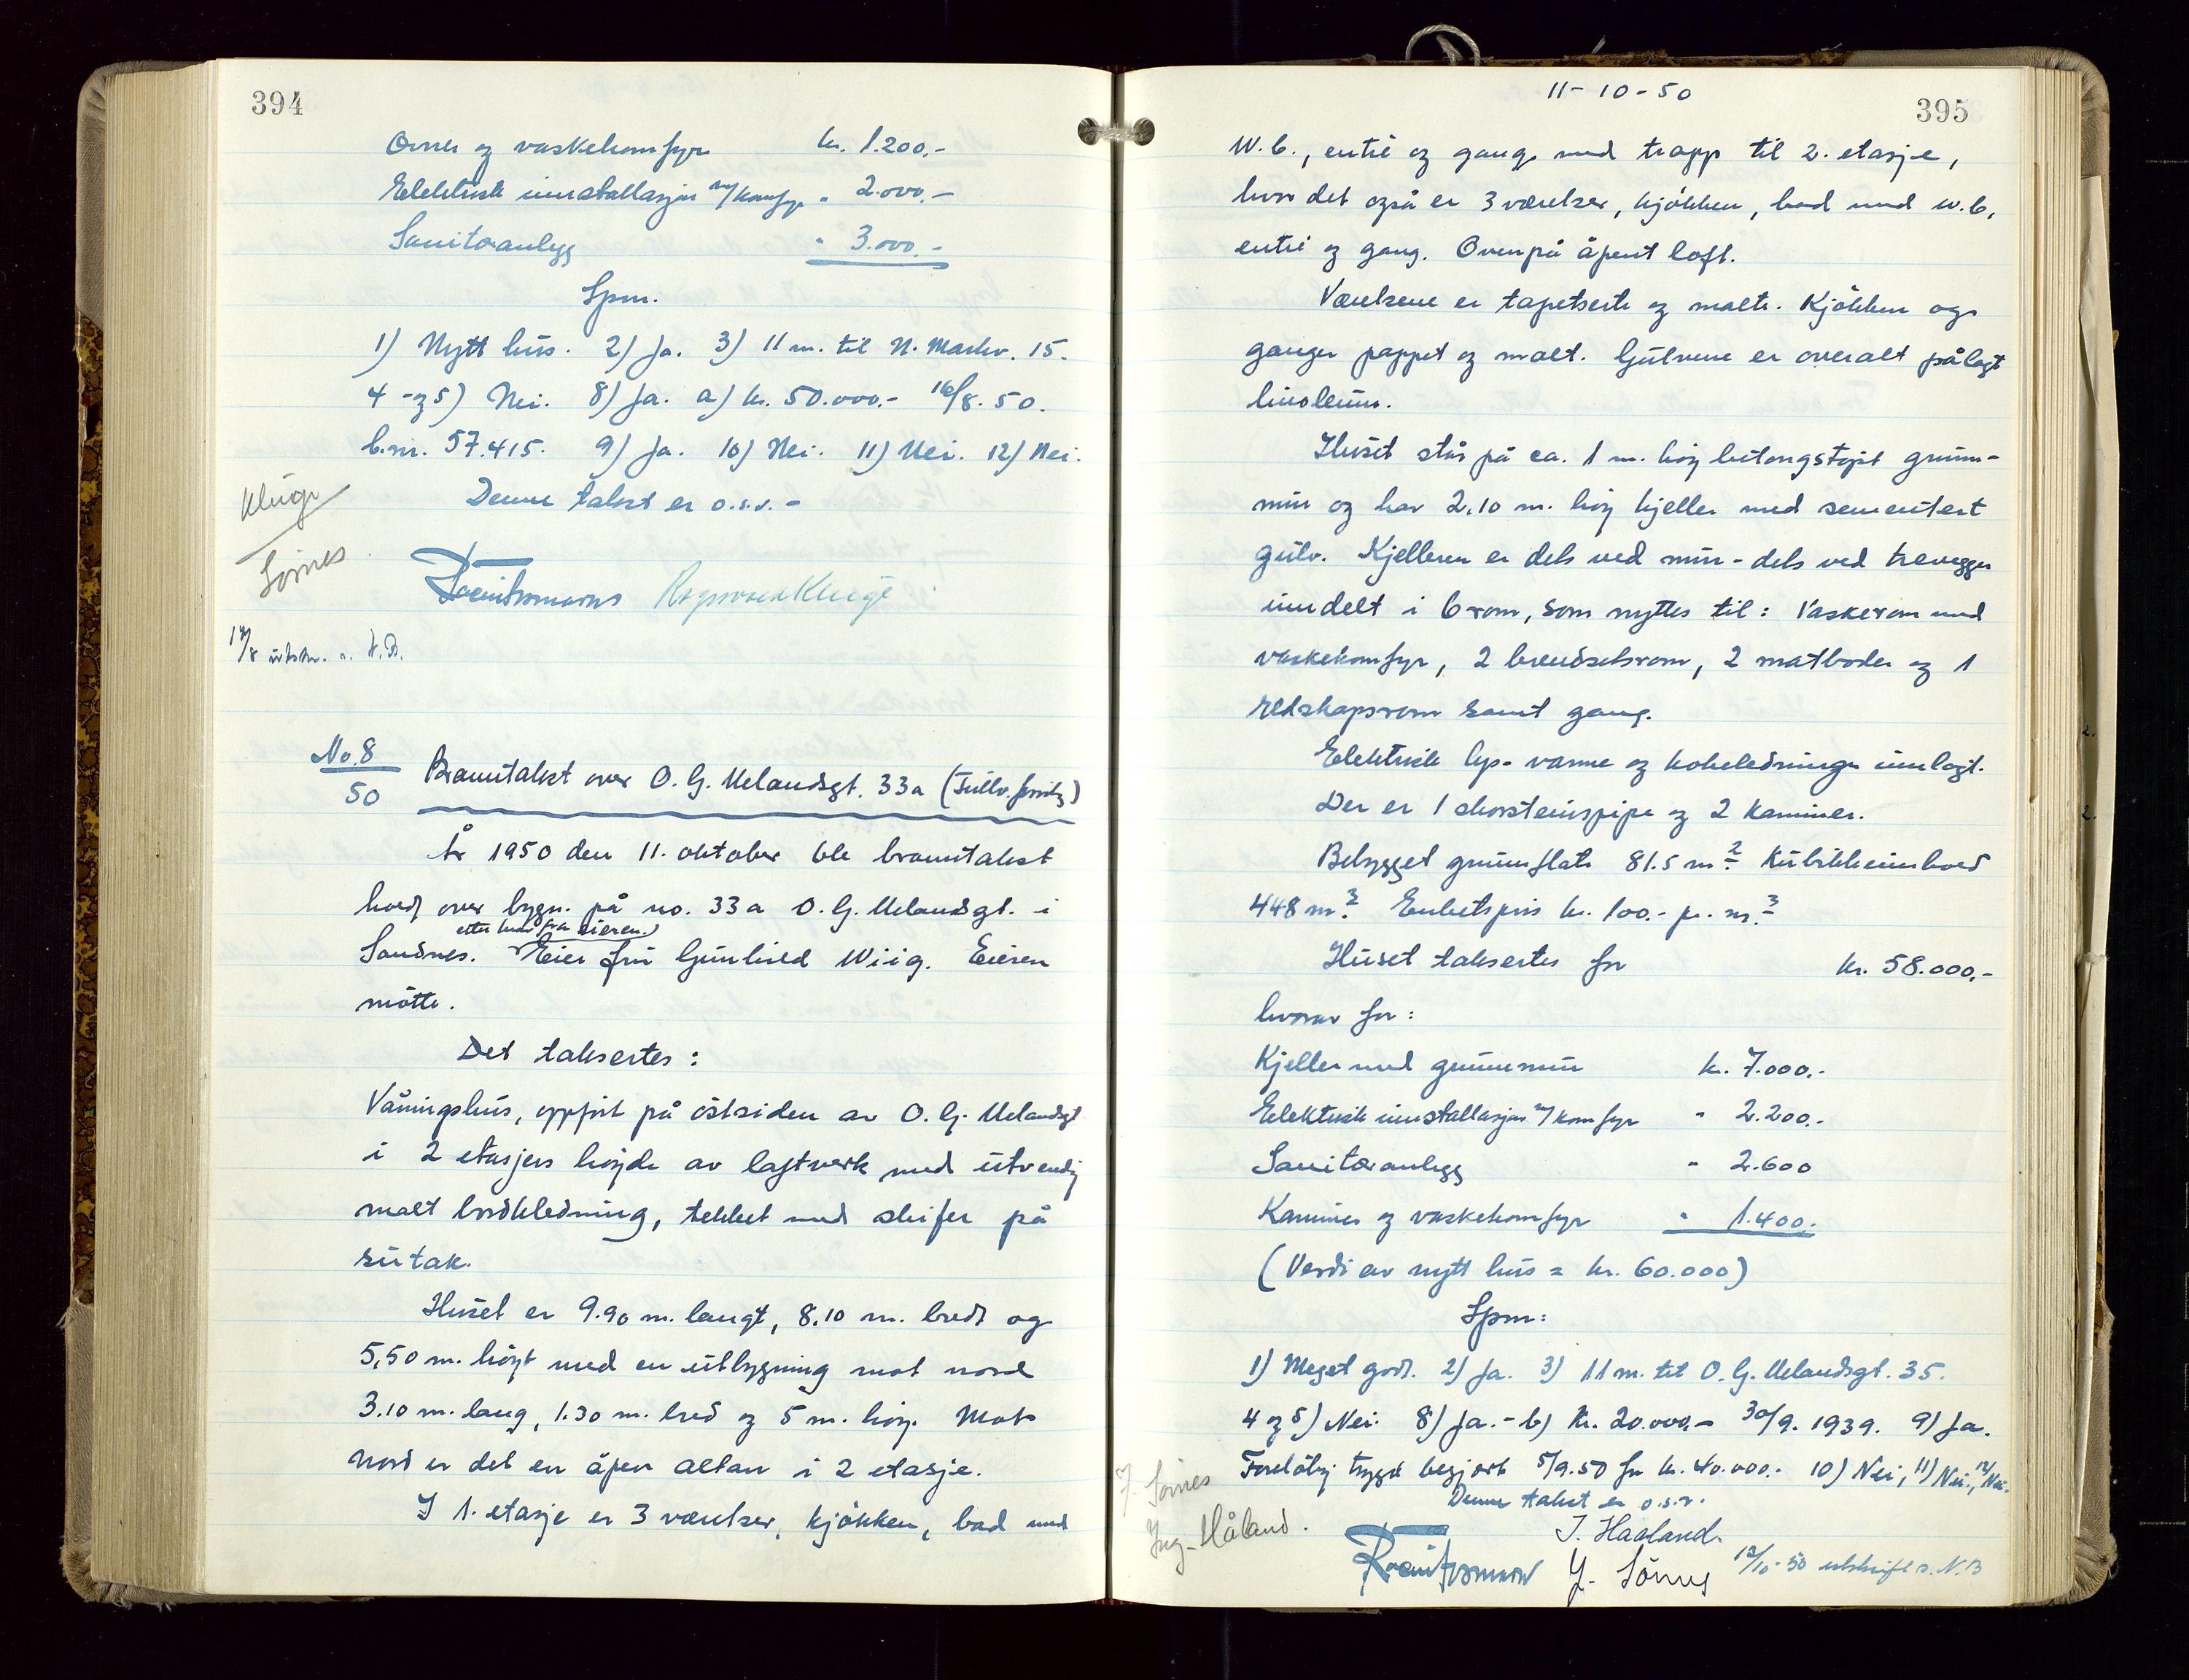 394
Ovner og vaskekomfyr kr. 1.200.-
Elektrisk innstallasjon m/komfyr " 2.000.-
Sanitæranlegg " 3.000.-
Spm.
1) Nytt hus. 2) Ja. 3) 11 m. til N. Maskv. 15.
4 - og 5) Nei. 8) Ja. a) kr. 50.000.- 16/8. 50.
b.nr. 57.415. 9) Ja. 10) Nei. 11) Nei. 12) Nei.
Denne takst er o.s.v. -
Kluge
Sørnes
17/8 utskr. s. N.B.
No. 8
50
Branntakst over O. G. Uelandsgt. 33a
År 1950 den 11. oktober ble branntakst
hold over bygn. på no. 33a O. G. Uelandsgt. i
etter krav fra eieren.
Sandnes. Eier fru Gunhild Wiig. Eieren
møtte.
Det taksertes:
Våningshus, oppført på østsiden av O. G. Uelandsgt
i 2 etasjers høyde av laftverk med utvendig
malt bordkledning, tekket med skifer på
sutak.
Huset er 9.90 m. langt, 8.10 m. bredt og
5,50 m. høyt med en utbygning mot nord
3.10 m. lang, 1.30 m. bred og 5 m. høy. Mot
nord er det en åpen altan i 2 etasje.
I 1. etasje er 3 værelser, kjøkken, bad med
11-10-50
395
W.C., entre og gang med trapp til 2. etasje,
hvor det også er 3 værelser, kjøkken, bad med w.c,
entre og gang. Ovenpå åpent loft.
Værelsene er tapetserte og malte. Kjøkken og
ganger pappet og malt. Gulvene er overalt pålagt
linoleum.
Huset står på ca. 1 m. høy betongstøpt grunn-
mur og har 2,10 m. høy kjeller med sementert
gulv. Kjelleren er dels ved mur - dels ved trevegger
inndelt i 6 rom, som nyttes til: Vaskerom med
vaskekomfyr, 2 brenselsrom, 2 matboder og 1
redskapsrom samt gang.
Elektrisk lys- varme og kokeledninger innlagt.
Der er 1 skorsteinspipe og 2 kaminer.
Bebygget grunnflate 81.5 m². Kubikkinnhold
448 m³. Enhetspris kr. 100.- pr. m³.
Huset taksertes for kr. 58.000,-
hvorav for:
Kjeller med grunnmur kr. 7.000.-
Elektrisk innstallasjon m/komfyr " 2.200.-
Sanitæranlegg " 2.600
Kaminer og vaskekomfyr " 1.400.
(Verdi av nytt hus = kr. 60.000)
Spm:
1) Meget godt. 2) Ja. 3) 11 m. til O. G. Uelandsgt. 35.
4 og 5) Nei. 8) Ja. - b) Kr. 20.000,- 30/9. 1939. 9) Ja.
Foreløbig trygd begjært 5/9.50 for kr. 40.000.- 10) Nei, 11) Nei, 12) Nei.
Denne takst er o.s.v.
Sørnes
Ing. Håland.
T. Haaland.
Y. Sörnes
12/10-50 utskrift s. N.B